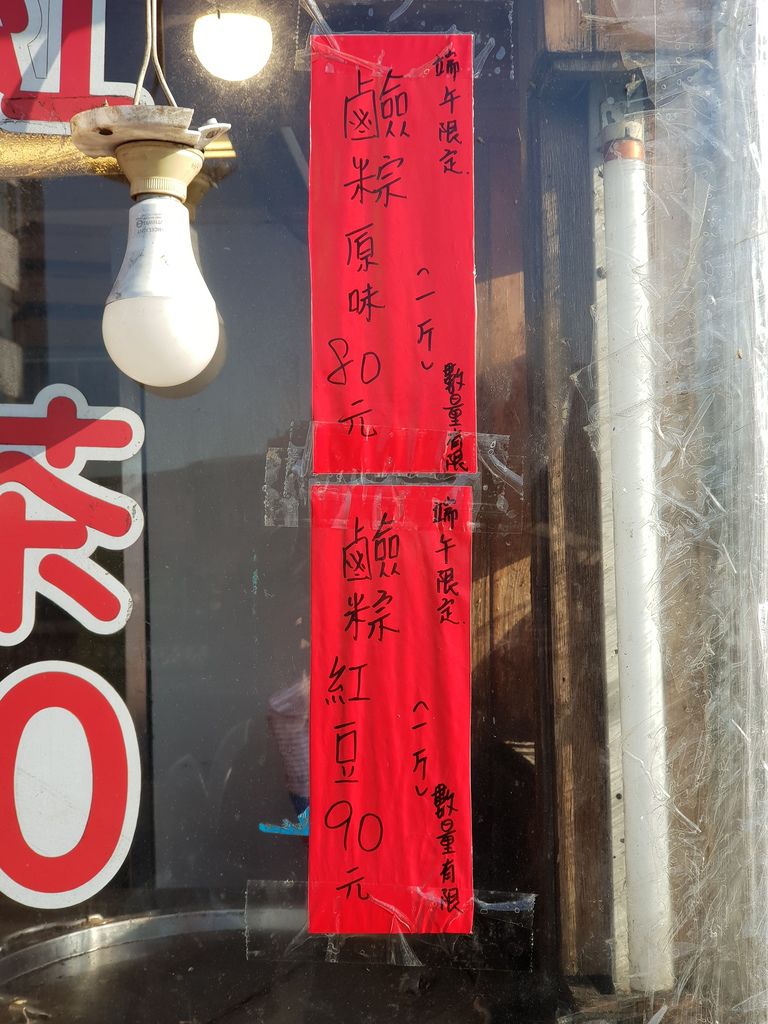 端午限定
鹼粽原味80元
(一斤)
數量有限
端午限定
鹼粽紅豆90元
(一斤)
數量有限
茶
0